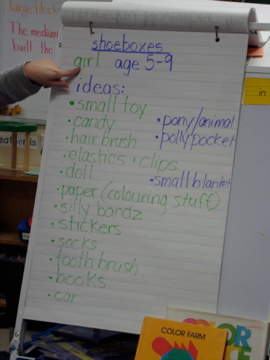 The medium
built the
shoeboxes
girl age 5-9
ideas:
• small toy
• candy
• hairbrush
• elastics + clips
• doll
• paper (colouring stuff)
• silly bandz
• stickers
• socks
• toothbrush
• books
• car
• pony/animal
• polly pocket
• small blanket
in
COLOR FARM